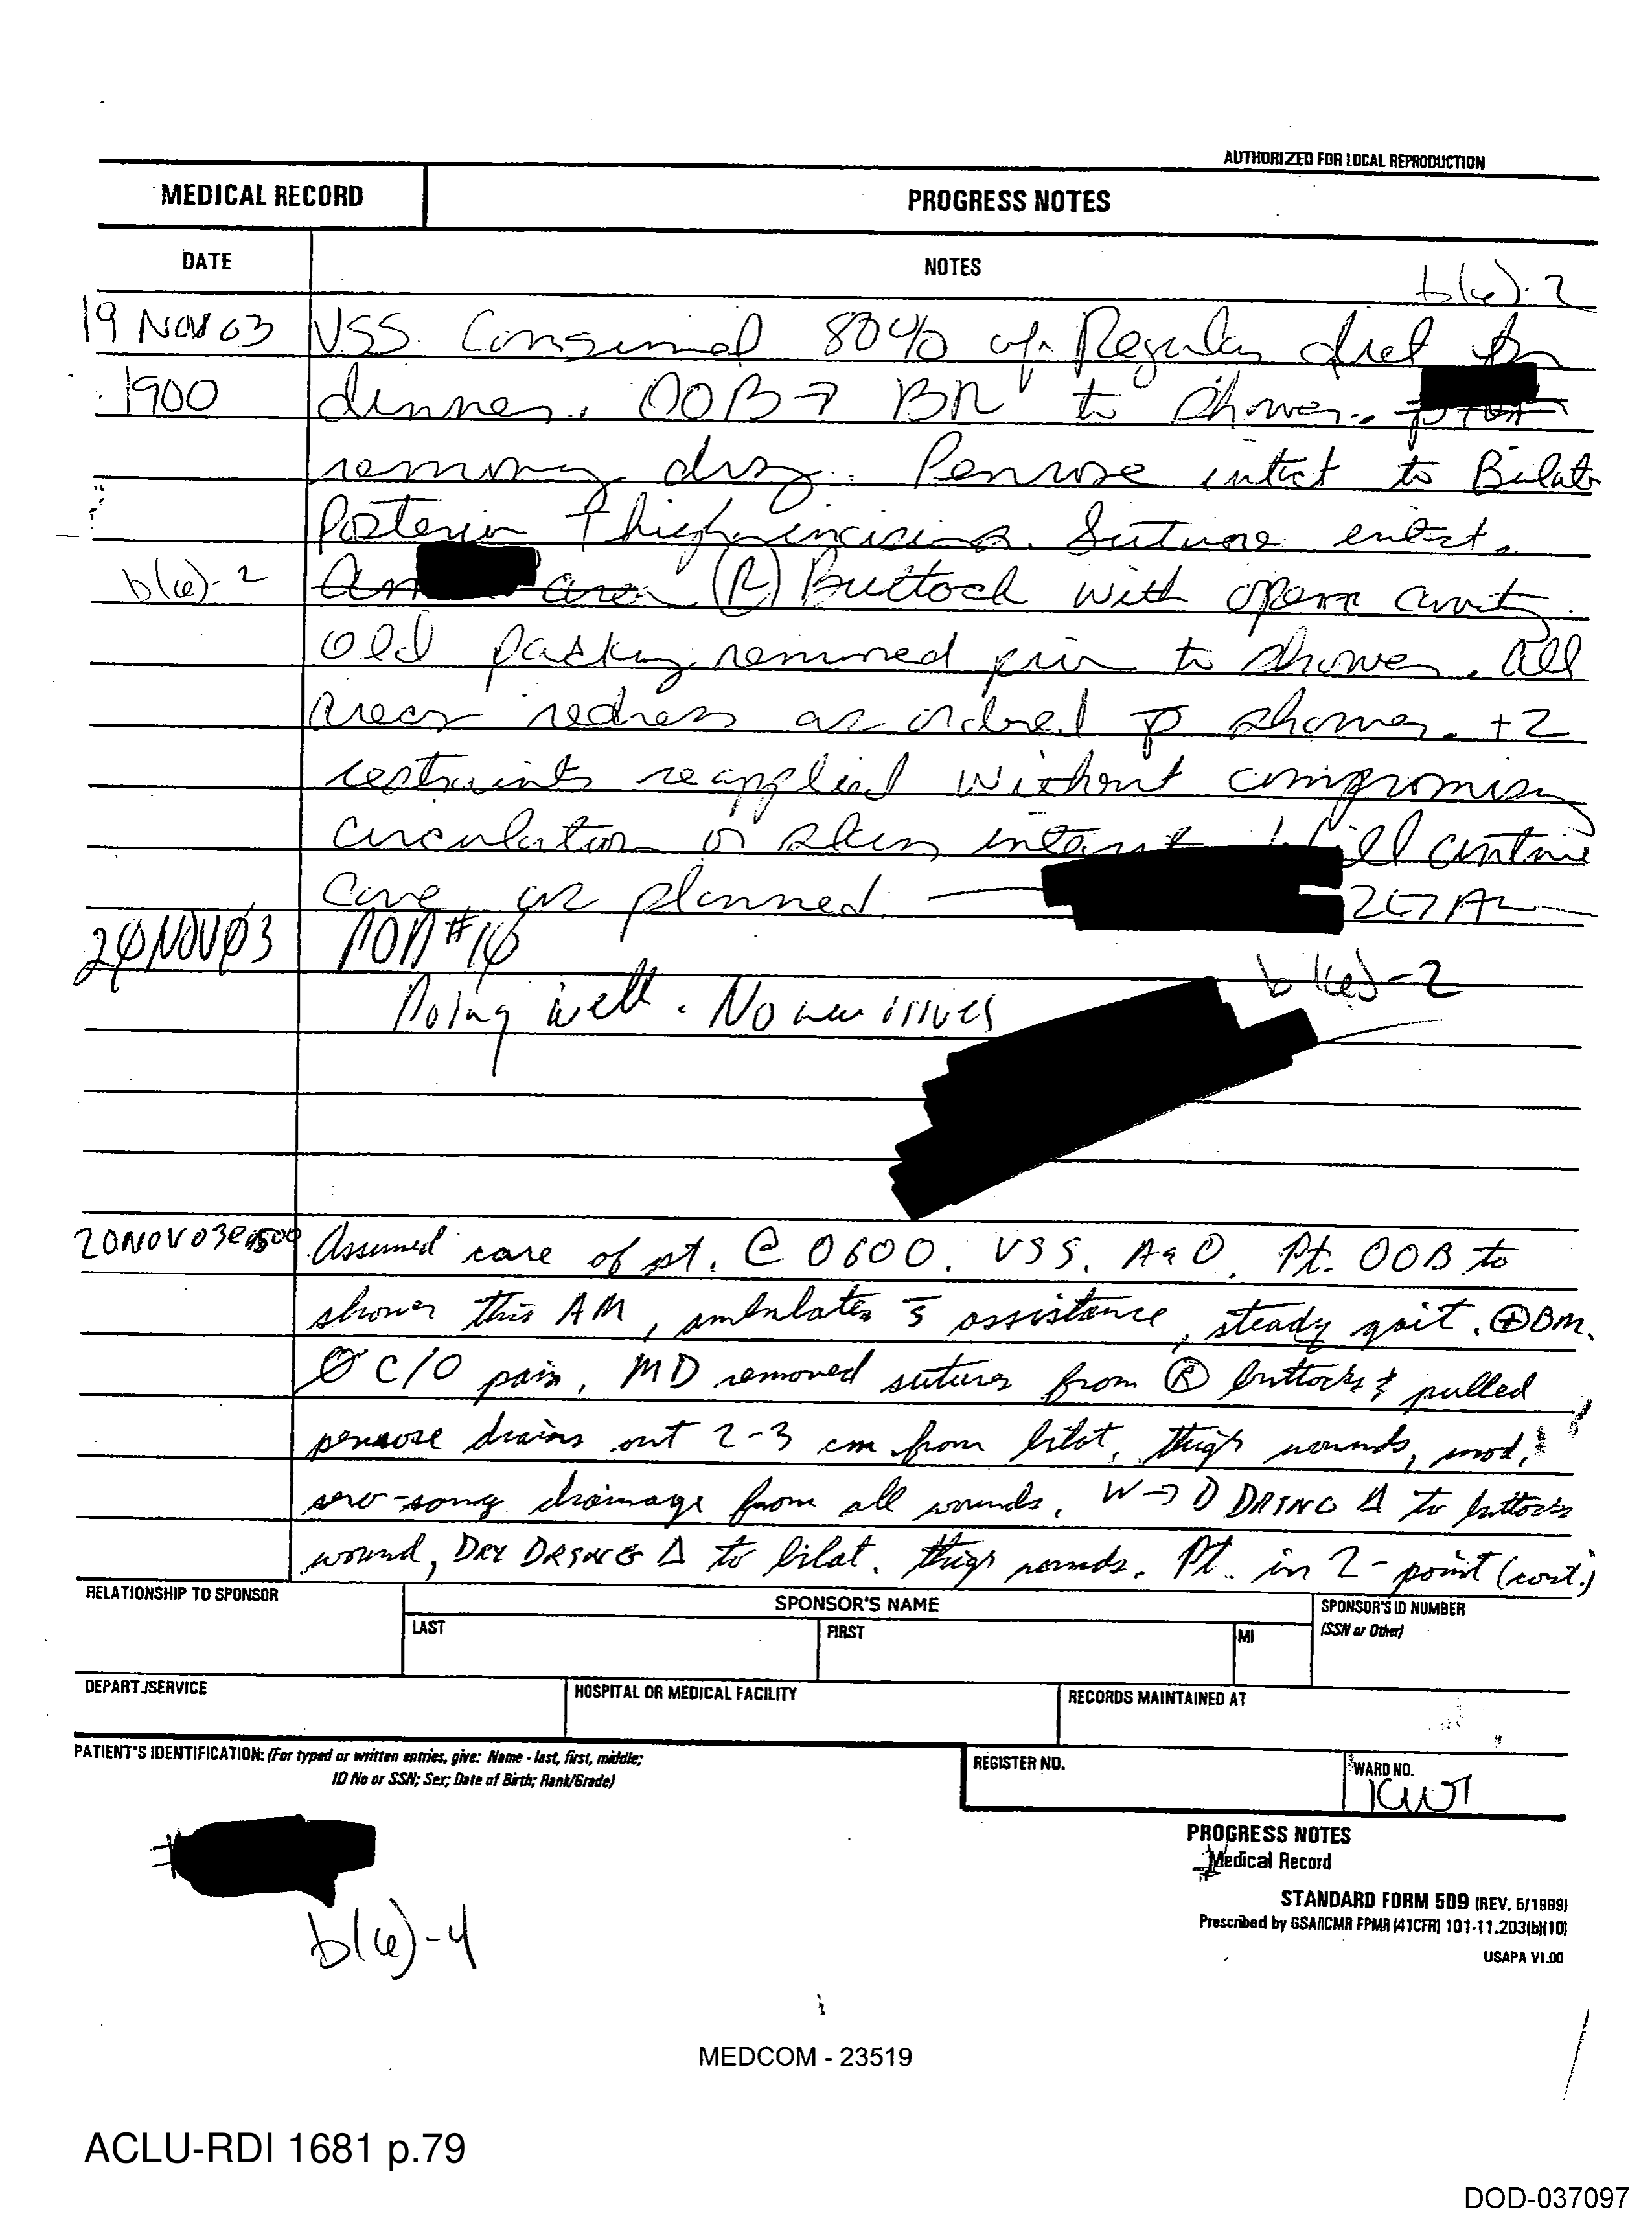 AUTHORIZED FOR LOCAL REPRODUCTION
MEDICAL RECORD
PROGRESS NOTES
DATE
NOTES
b(6)-2
19 NOV 03 VSS. Consumed 80% of Regular diet for
1900 dinner. OOB → BR to shower.
removing drsg. Penrose intact to Bilat
Posterior Thigh incisions. Suture intact.
b(6)-2 area (R) Buttock with open cavity
old packing removed prior to shower. All
areas redress as ordered p̄ shower. +2
restraints reapplied without compromising
circulation or skin Will continue
care as planned
b(6)-2
20NOV03 POD #14
Doing well. No new issues
20NOV03@1500 Assumed care of pt. @ 0600. VSS. A&O. Pt. OOB to
shower this AM, ambulates s̄ assistance, steady gait. ⊕BM.
Ø C/O pain. MD removed sutures from Ⓡ buttocks & pulled
penrose drains out 2-3 cm from bilat. thigh wounds, mod.
sero-sang. drainage from all wounds. W→D DRSNG Δ to buttocks
wound, DRY DRSNG Δ to bilat. thigh wounds. Pt. in 2-point (cont.)
RELATIONSHIP TO SPONSOR
SPONSOR'S NAME
SPONSOR'S ID NUMBER
(SSN or Other)
LAST
FIRST
MI
DEPART./SERVICE
HOSPITAL OR MEDICAL FACILITY
RECORDS MAINTAINED AT
PATIENT'S IDENTIFICATION: (For typed or written entries, give: Name - last, first, middle;
ID No or SSN; Sex; Date of Birth; Rank/Grade)
REGISTER NO.
WARD NO.
ICW1
#
b(6)-4
PROGRESS NOTES
Medical Record
STANDARD FORM 509 (REV. 5/1999)
Prescribed by GSA/ICMR FPMR (41CFR) 101-11.203(b)(10)
USAPA V1.00
MEDCOM - 23519
ACLU-RDI 1681 p.79
DOD-037097